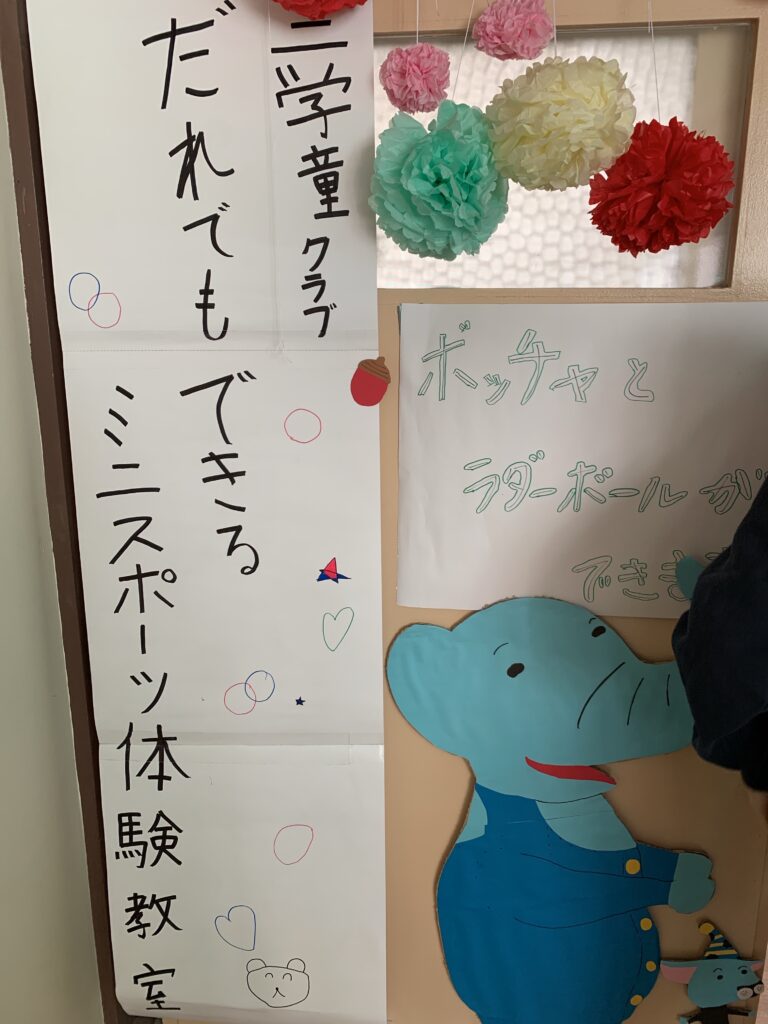 二学童クラブ
だれでもできる
ミニスポーツ体験教室
ボッチャと
ラダーボールが
できま